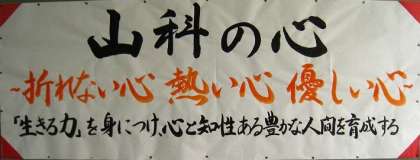 山科の心
~折れない心 熱い心 優しい心~
「生きる力」を身につけ、心と知性ある豊かな人間を育成する